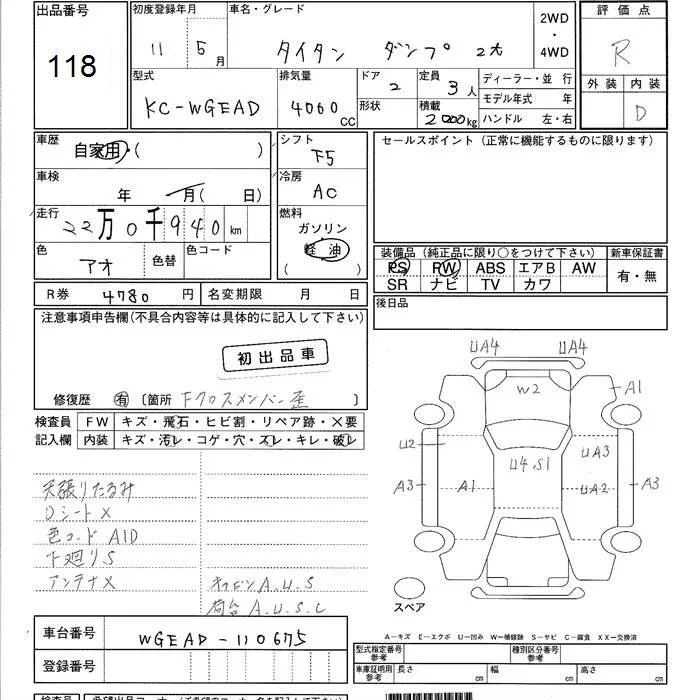 出品番号
118
初度登録年月
11 5月
車名・グレード
タイタン ダンプ 2t
2WD
・
4WD
評価点
R
外装 内装
D
型式
KC-WGEAD
排気量
4060 cc
ドア
2
形状
定員
3人
積載
2000kg
ディーラー・並行
モデル年式 年
ハンドル 左・右
車歴
自家用・( )
車検
年 月( 日)
走行
22万0千940km
色
アオ
色替
色コード
シフト
F5
冷房
AC
燃料
ガソリン
軽油
( )
セールスポイント(正常に機能するものに限ります)
装備品(純正品に限り○をつけて下さい)
PS RW ABS エアB AW
SR ナビ TV カワ
新車保証書
有・無
R券 4780円
名変期限 月 日
後日品
注意事項申告欄(不具合内容等は具体的に記入して下さい)
初出品車
修復歴 有 〔箇所 Fクロスメンバー歪 〕
検査員
記入欄
FW キズ・飛石・ヒビ割・リペア跡・×要
内装 キズ・汚レ・コゲ・穴・スレ・キレ・破レ
天張りたるみ
Dシート×
色コード A1D
下廻りS
アンテナ×
キャビン A.U.S
荷台 A.U.S.C
UA4 UA4
W2
A1
U2
U4.S1
UA3
A3
A1
UA2
A3
スペア
A-キズ E-エクボ U-凹み W-補修跡 S-サビ C-腐食 XX-交換済
車台番号
WGEAD-110675
登録番号
型式指定番号
参考
種別区分番号
参考
車庫証明用
参考
長さ cm
幅 cm
高さ cm